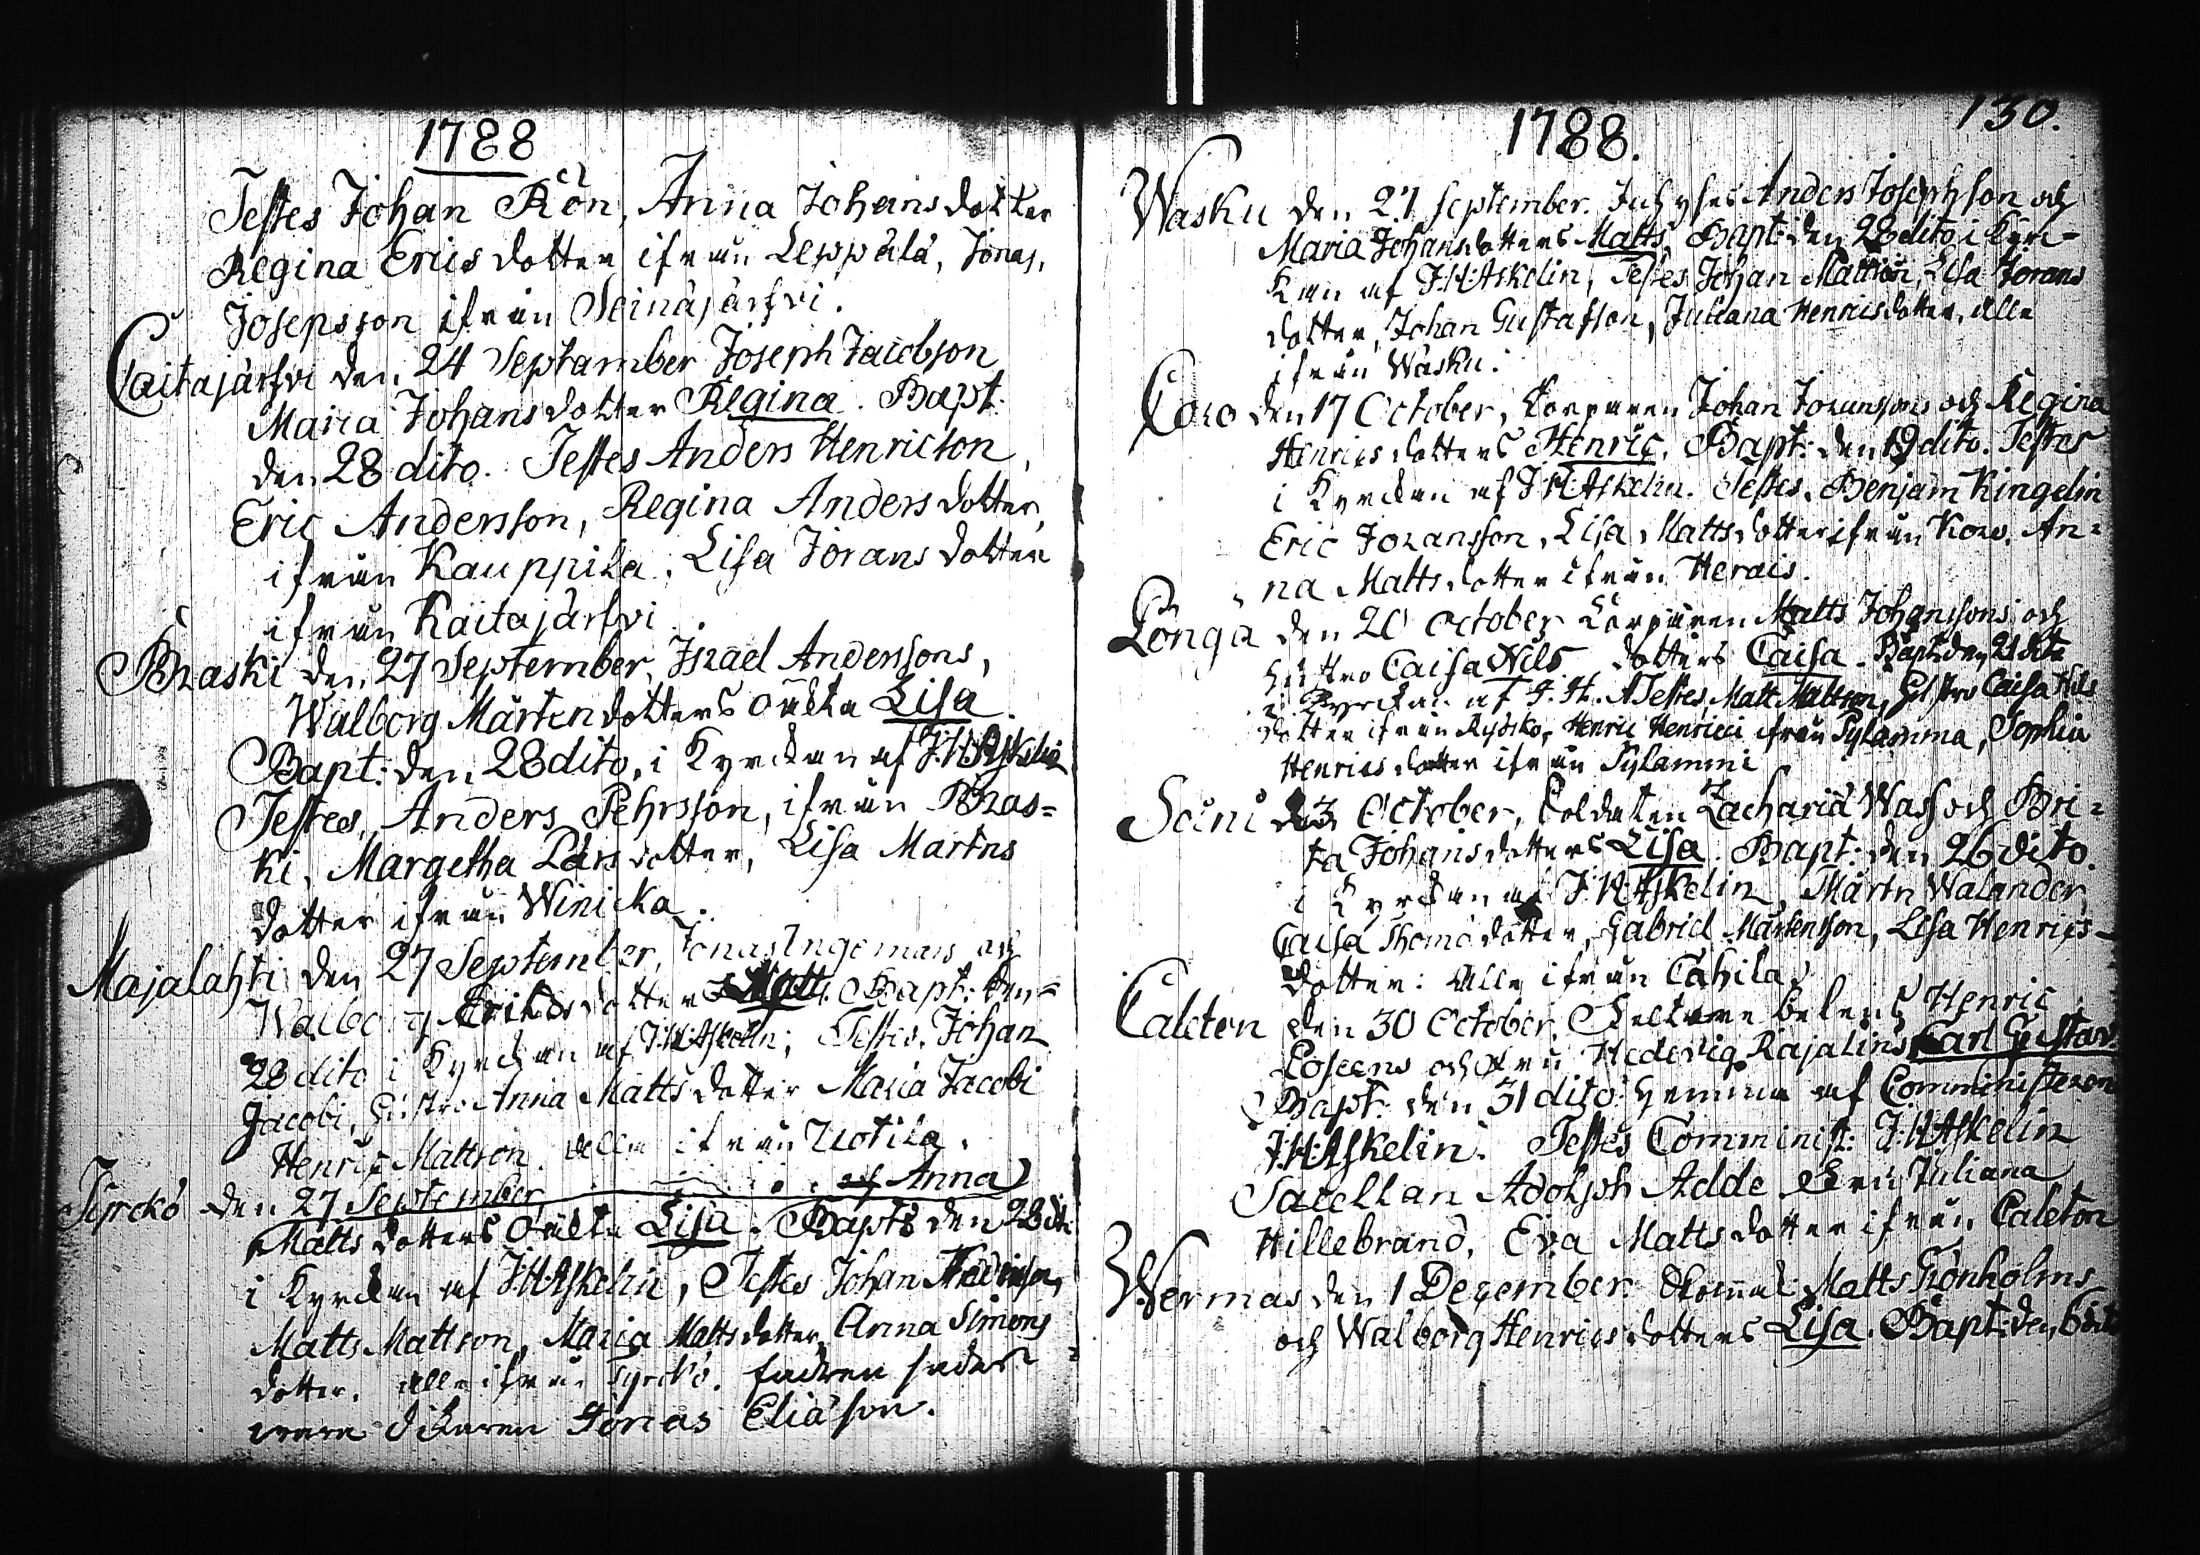 1788
Testes Johan Rön, Anna Johansdotter
Regina Ericsdotter ifrån Leppälä, Jonas,
Josepsson ifrån Seinäjärfvi.
Caitajärfvi den 24 September Joseph Jacobson
Maria Johansdotter Regina. Bapt.
den 28 dito. Testes Anders Henricson,
Eric Andersson, Regina Andersdotter,
ifrån Kauppila, Lisa Joransdotter
ifrån Kaitajärfvi
Braski den 27 September, Israel Anderssons,
Walborg Mårtendotters oäckta Lisa.
Bapt: den 28 dito, i Kyrckan af J.H.Askelin
Testes, Anders Pehrsson, ifrån Bras=
ki, Margetha Larsdotter, Lisa Martns
dotter ifrån Winicka.
Majalahti den 27 September, Jonas Ingomars och
Walborg Eriksdotters Matts. Bapt: den
28 dito i Kyrckan af J.H.Askelin; Testes, Johan
Jacobi, Hustro Anna Mattsdotter Maria Jacobi
Henric Mattson. alla ifrån Uotila.
Syrckö den 27 September af Anna
Matts dotters oäckta Lisa. Bapt: den 28 dito
i Kyrckan af J.H.Askelin, Testes Johan
Matts Mattson, Maria Mattsdotter, Anna Simons
dotter. alla ifrån Syrckö. fadren sades
vara Jonas Eliäson.
130.
1788.
Wasku den 27 September. Anders Josephson och
Maria Johansdotters Matts. Bapt: den 28 dito i Kyrc-
kan af J.H.Askelin, Testes Johan Mattson, Lisa Jorans
dotter, Johan Gustafson, Juliana Henricsdotter, alla
ifrån Wasku.
Coro den 17 October, Johan Joransson och Regina
Henricsdotters Henric. Bapt: den 19 dito. Testes
i Kyrckan af J.H.Askelin. Testes. Benjam Ringelin
Eric Joransson, Lisa Mattsdotter ifrån Koro. An=
na Mattsdotter ifrån Herais.
Longa den 20 October Matts Johanssons och
hustro Caisa Nils dotters Caisa. Bapt: den 21 dito
i Kyrckan af J.H.A. Testes Matt Mattson, Hustro Caisa Nils
dotter ifrån Ryssko, Henric Henrici ifrån Sylammi, Sophia
Henricsdotter ifrån Sylammi
Soini den 3 October, Soldaten Zacharia Wass och Bri=
ta Johansdotters Lisa. Bapt: den 26 dito.
i Kyrckan af J.H.Askelin, Martn Walander,
Caisa Thomädotter, Gabriel Martensson, Lisa Henrics
dotter: alla ifrån Cahila
Caleton den 30 October. Henric
och fru Hedevig Rajalins Carl Gustav
Bapt: den 31 dito hemma af Comministeren
J.H.Askelin. Testes Comminist: J.H.Askelin
Sacellan Adolph Adde Juliana
Hillebrand, Eva Mattsdotter ifrån Caleton
Wermas den 1 December: Matts Grönholms
och Walborg Henricsdotters Lisa. Bapt: den 6 dito